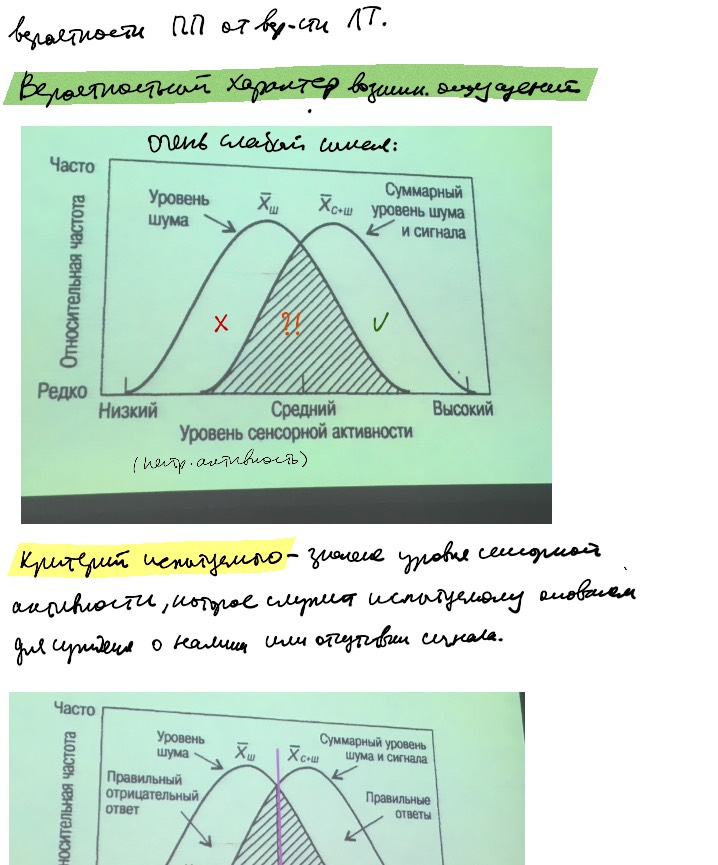 вероятности ПП от вер-сти ЛТ.
Вероятностный характер возникн. ощущений
очень слабый сигнал:
Часто
Относительная частота
Уровень шума
X̄ш
X̄с+ш
Суммарный уровень шума и сигнала
х
?!
✓
Редко
Низкий
Средний
Высокий
Уровень сенсорной активности
(нейр. активность)
Критерий испытуемого – значение уровня сенсорной
активности, которое служит испытуемому основанием
для суждения о наличии или отсутствии сигнала.
Часто
Уровень шума
X̄ш
X̄с+ш
Суммарный уровень шума и сигнала
Правильный отрицательный ответ
Правильные ответы